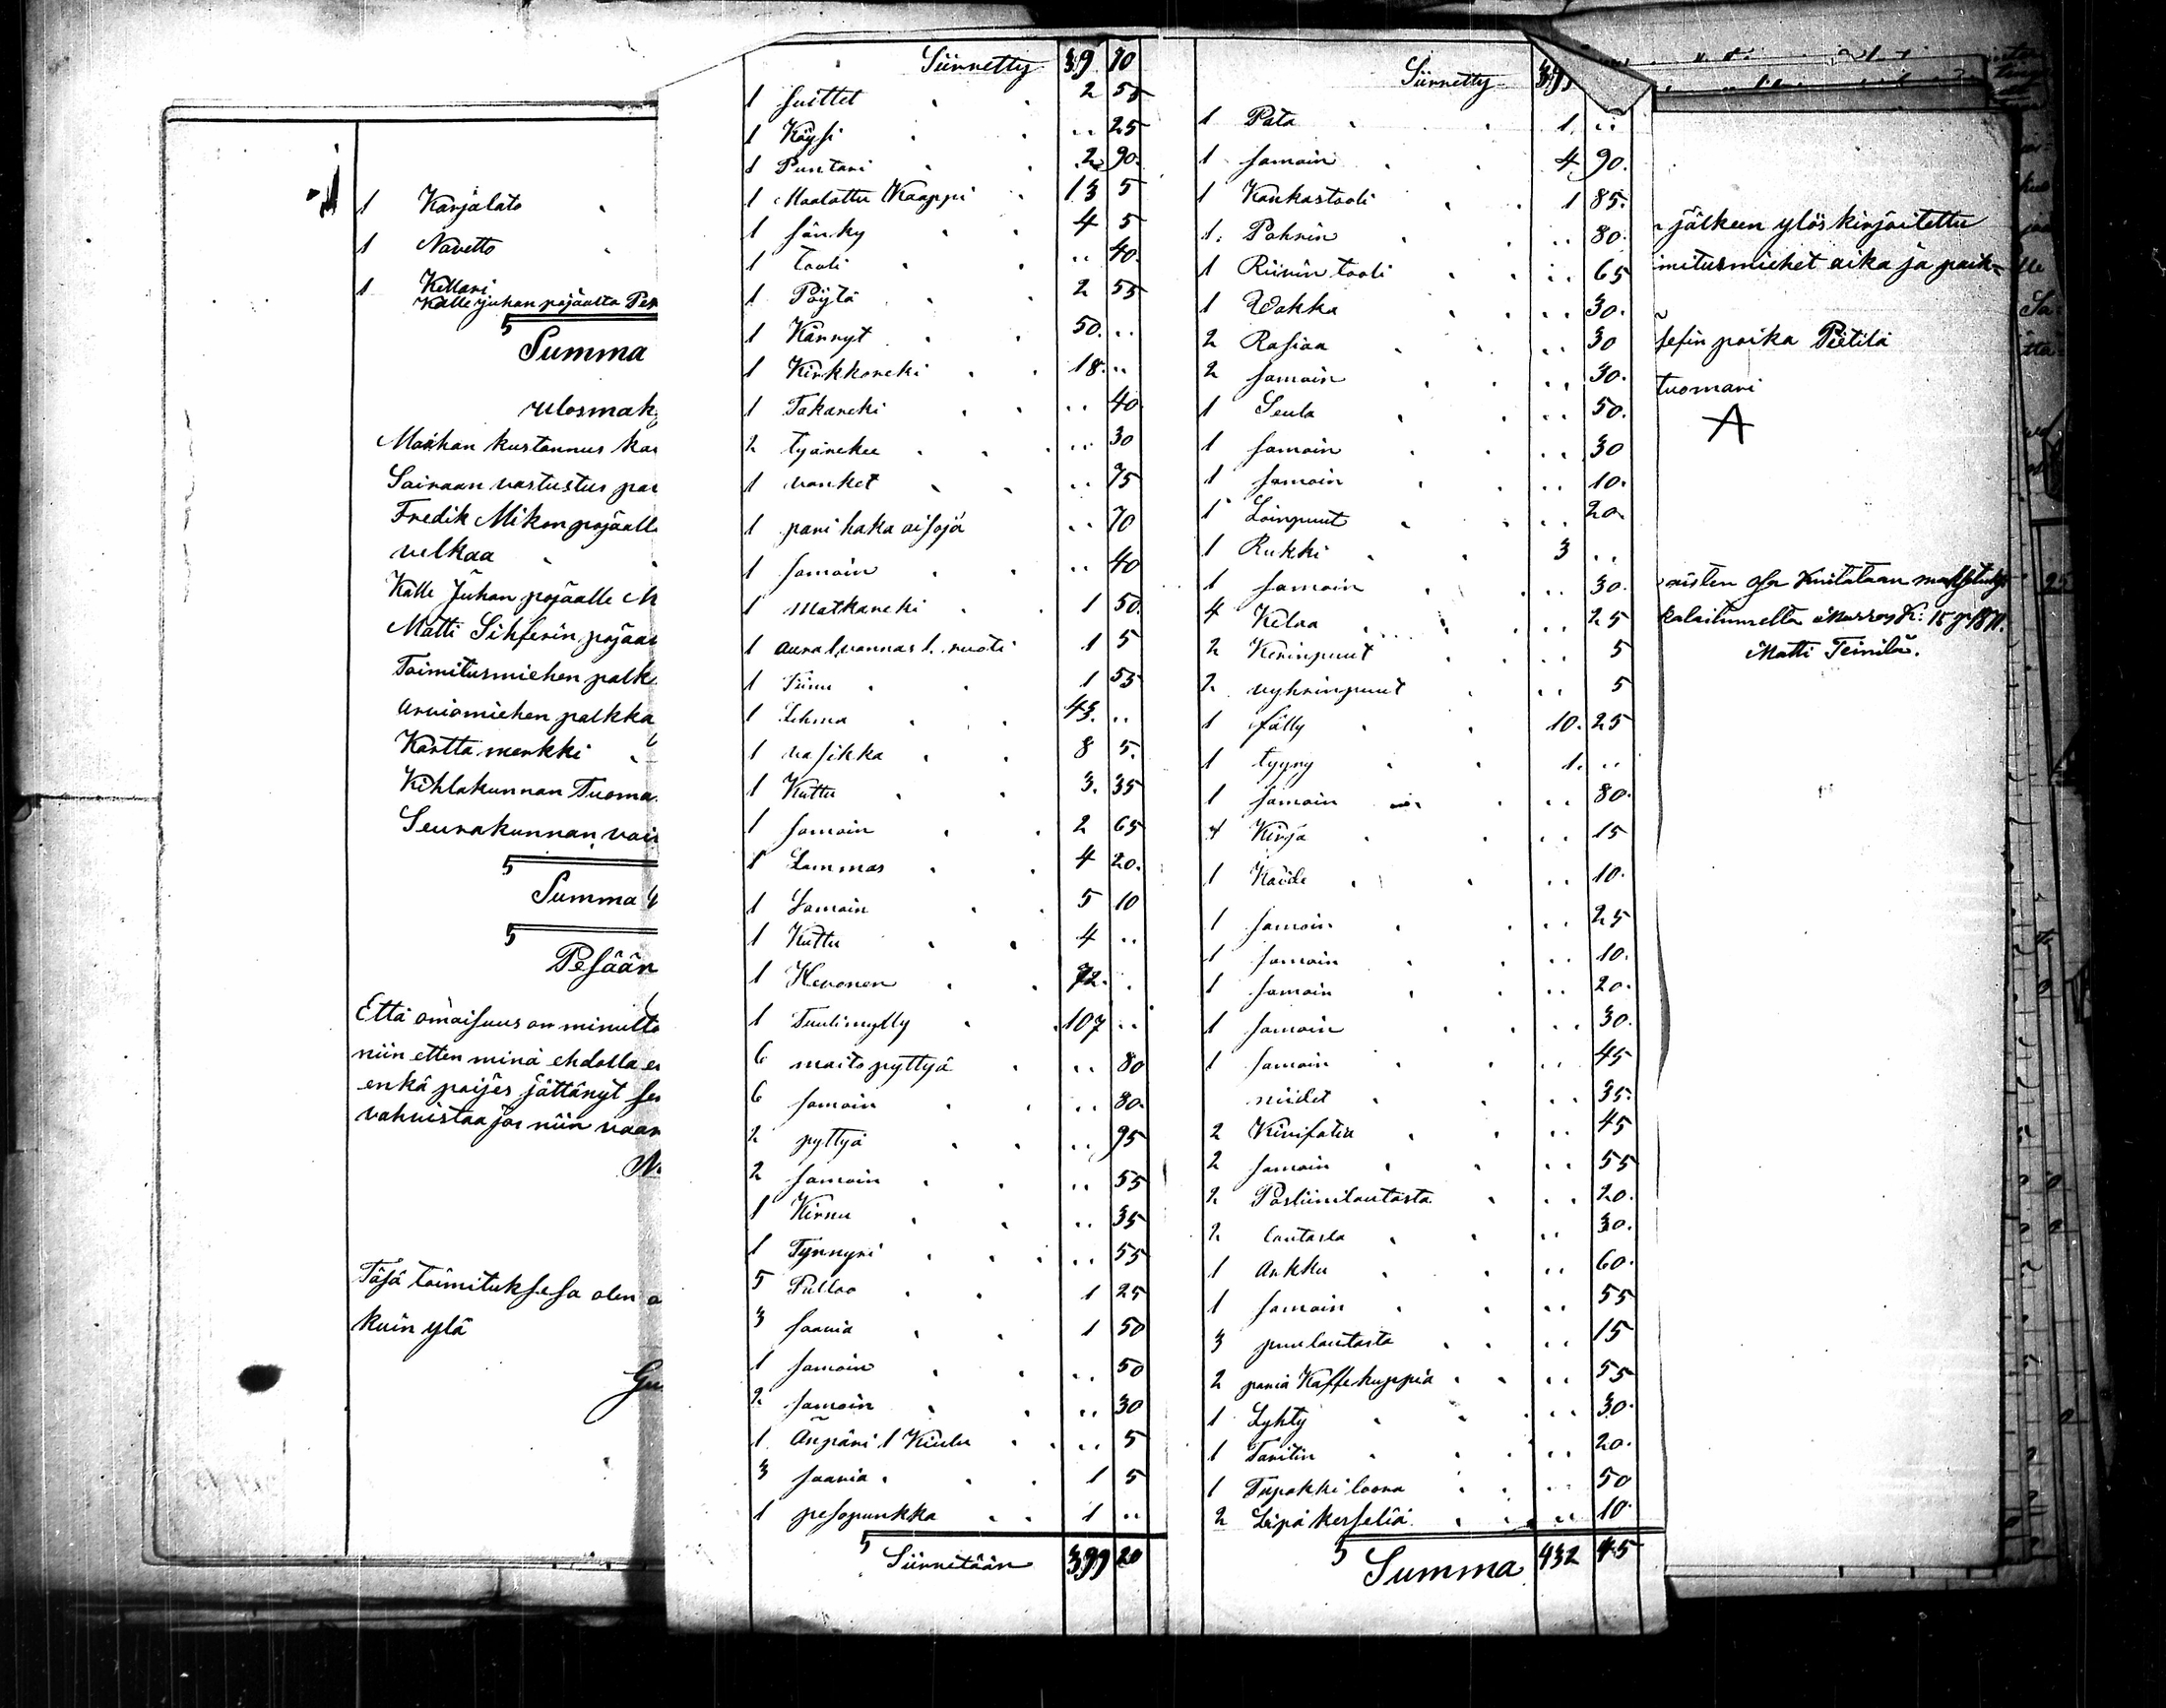 1 Karjalato
1 Navetto
1 Kellari
Kalle Juhan pojaalta
Summa
Ulosmak
Maahan kustannus
Sairaan vastustus
Fredik Mikon pojaalle
velkaa
Kalle Juhan pojaalle M
Matti Sihferin pojaa
Toimitusmiehen palk
Arviomiehen palkka
Kartta merkki
Kihlakunnan Tuoma
Seurakunnan vai
Summa
Pesään
Että omaisuus on minulta
niin etten minä ehdolla
enkä poijes jättänyt
vahvistaa jos niin vaa
Täsä toimituksesa olen
kuin ylä
Siirretty 39 70
1 suittet 2 55
1 Köysi .. 25
1 Puntari 2 90.
1 Maalattu Kaappi 13 5
1 sänky 4 5
1 tooli .. 40.
1 Pöytä 2 55
1 Kärryt 50. ..
1 Kirkkoreki 18. ..
1 Takareki .. 40.
2 työrekee .. 30
1 vanket .. 75
1 pari haka aisoja .. 70
1 samoin .. 40
1 Matkareki 1 50.
1 aura 1 vannas 1 ruoti 1 5
1 Siinu 1 55
1 Lehmä 43. ..
1 vasikka 8 5.
1 Kuttu 3. 35
1 samoin 2 65
1 Lammas 4 20.
1 Samoin 5 10
1 Kuttu 4 ..
1 Hevonen 72. .
1 Tuulimylly 107 ..
6 maitopyttyä .. 80
6 samoin .. 80.
2 pyttyä .. 95
2 samoin .. 55
1 Kirnu .. 35
1 Tynnyri .. 55
5 Pulloo 1 25
3 saavia 1 50
1 samoin .. 50
2 samoin .. 30
1 Änpäri 1 Kiulu .. 5
3 saavia 1 5
1 pesopunkka 1 ..
Siirretään 399 20
Siirretty
1 Pata 1. ..
1 samoin 4 90.
1 Kankastooli 1 85.
1. Pohrin .. 80.
1 Riivin tooli .. 65
1 Wakka .. 30.
2 Rasiaa .. 30
2 samoin .. 30.
1 Seula .. 50.
1 samoin .. 30
1 samoin .. 10.
1 Loinpuut .. 20.
1 Rukki 3 ..
1 samoin .. 30.
4 Kelaa .. 25
2 Kerinpuut .. 5
2 vyhrinpuut .. 5
1 fälly 10. 25
1 tyyny 1. ..
1 samoin .. 80.
4 Kirja .. 15
1 Kaide .. 10.
1 samoin .. 25
1 samoin .. 10.
1 samoin .. 20.
1 samoin .. 30.
1 samoin .. 45
niidet .. 35.
2 Kivifatia .. 45
2 samoin .. 55
2 Posliinilautasta .. 20.
2 lautasta .. 30.
1 Ankku .. 60.
1 samoin .. 55
3 puulautasta .. 15
2 paria Kaffekuppia .. 55
1 Lyhty .. 30.
1 Taritin .. 20.
1 Tupakki loora .. 50
2 Leipä kesseliä .. 10.
Summa 432 45
jälkeen ylöskirjoitettu
mitusmiehet aika ja paik-
sefin poika Pietilä
tuomari
aisten osa Kuitataan
Matti Teinilä.